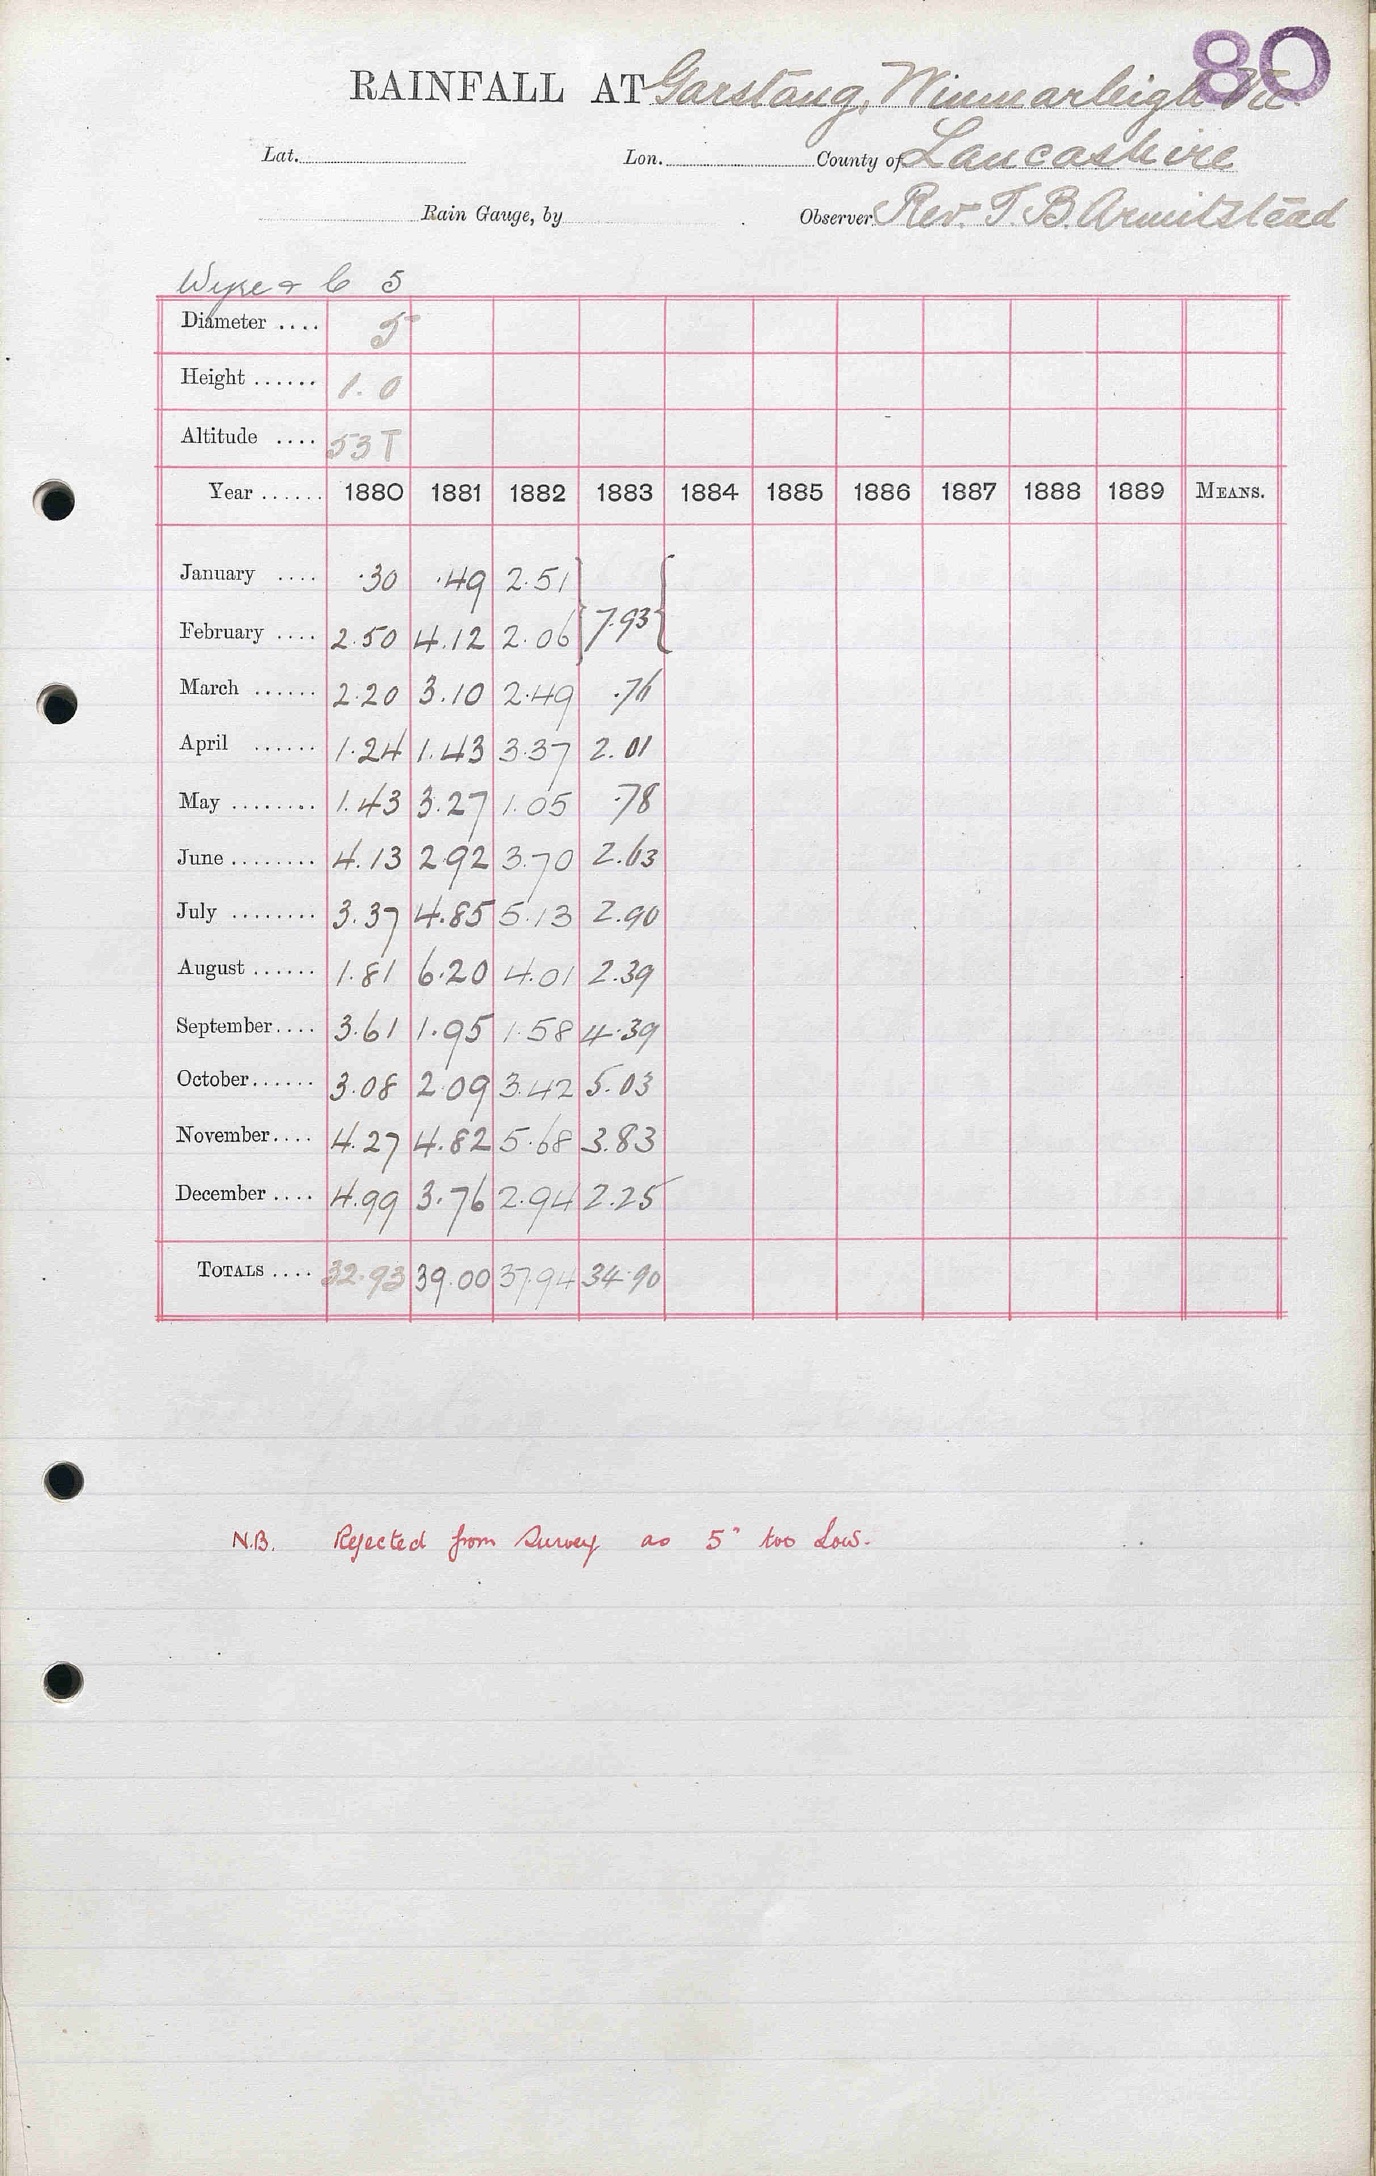 80
RAINFALL AT Garstang, Winmarleigh Vic
Lat. Lon. County of Lancashire
Rain Gauge, by Observer Rev. T. B. Armitstead
5
Diameter .... 5
Height ...... 1.0
Altitude .... 53 T
Year ...... 1880 1881 1882 1883 1884 1885 1886 1887 1888 1889 MEANS.
January .... .30 .49 2.51
February .... 2.50 4.12 2.06 } 7.93 {
March ...... 2.20 3.10 2.49 .76
April ...... 1.24 1.43 3.37 2.01
May ........ 1.43 3.27 1.05 .78
June ........ 4.13 2.92 3.70 2.63
July ........ 3.37 4.85 5.13 2.90
August ...... 1.81 6.20 4.01 2.39
September.... 3.61 1.95 1.58 4.39
October...... 3.08 2.09 3.42 5.03
November.... 4.27 4.82 5.68 3.83
December .... 4.99 3.76 2.94 2.25
TOTALS .... 32.93 39.00 37.94 34.90
N.B. Rejected from Survey as 5" too Low.